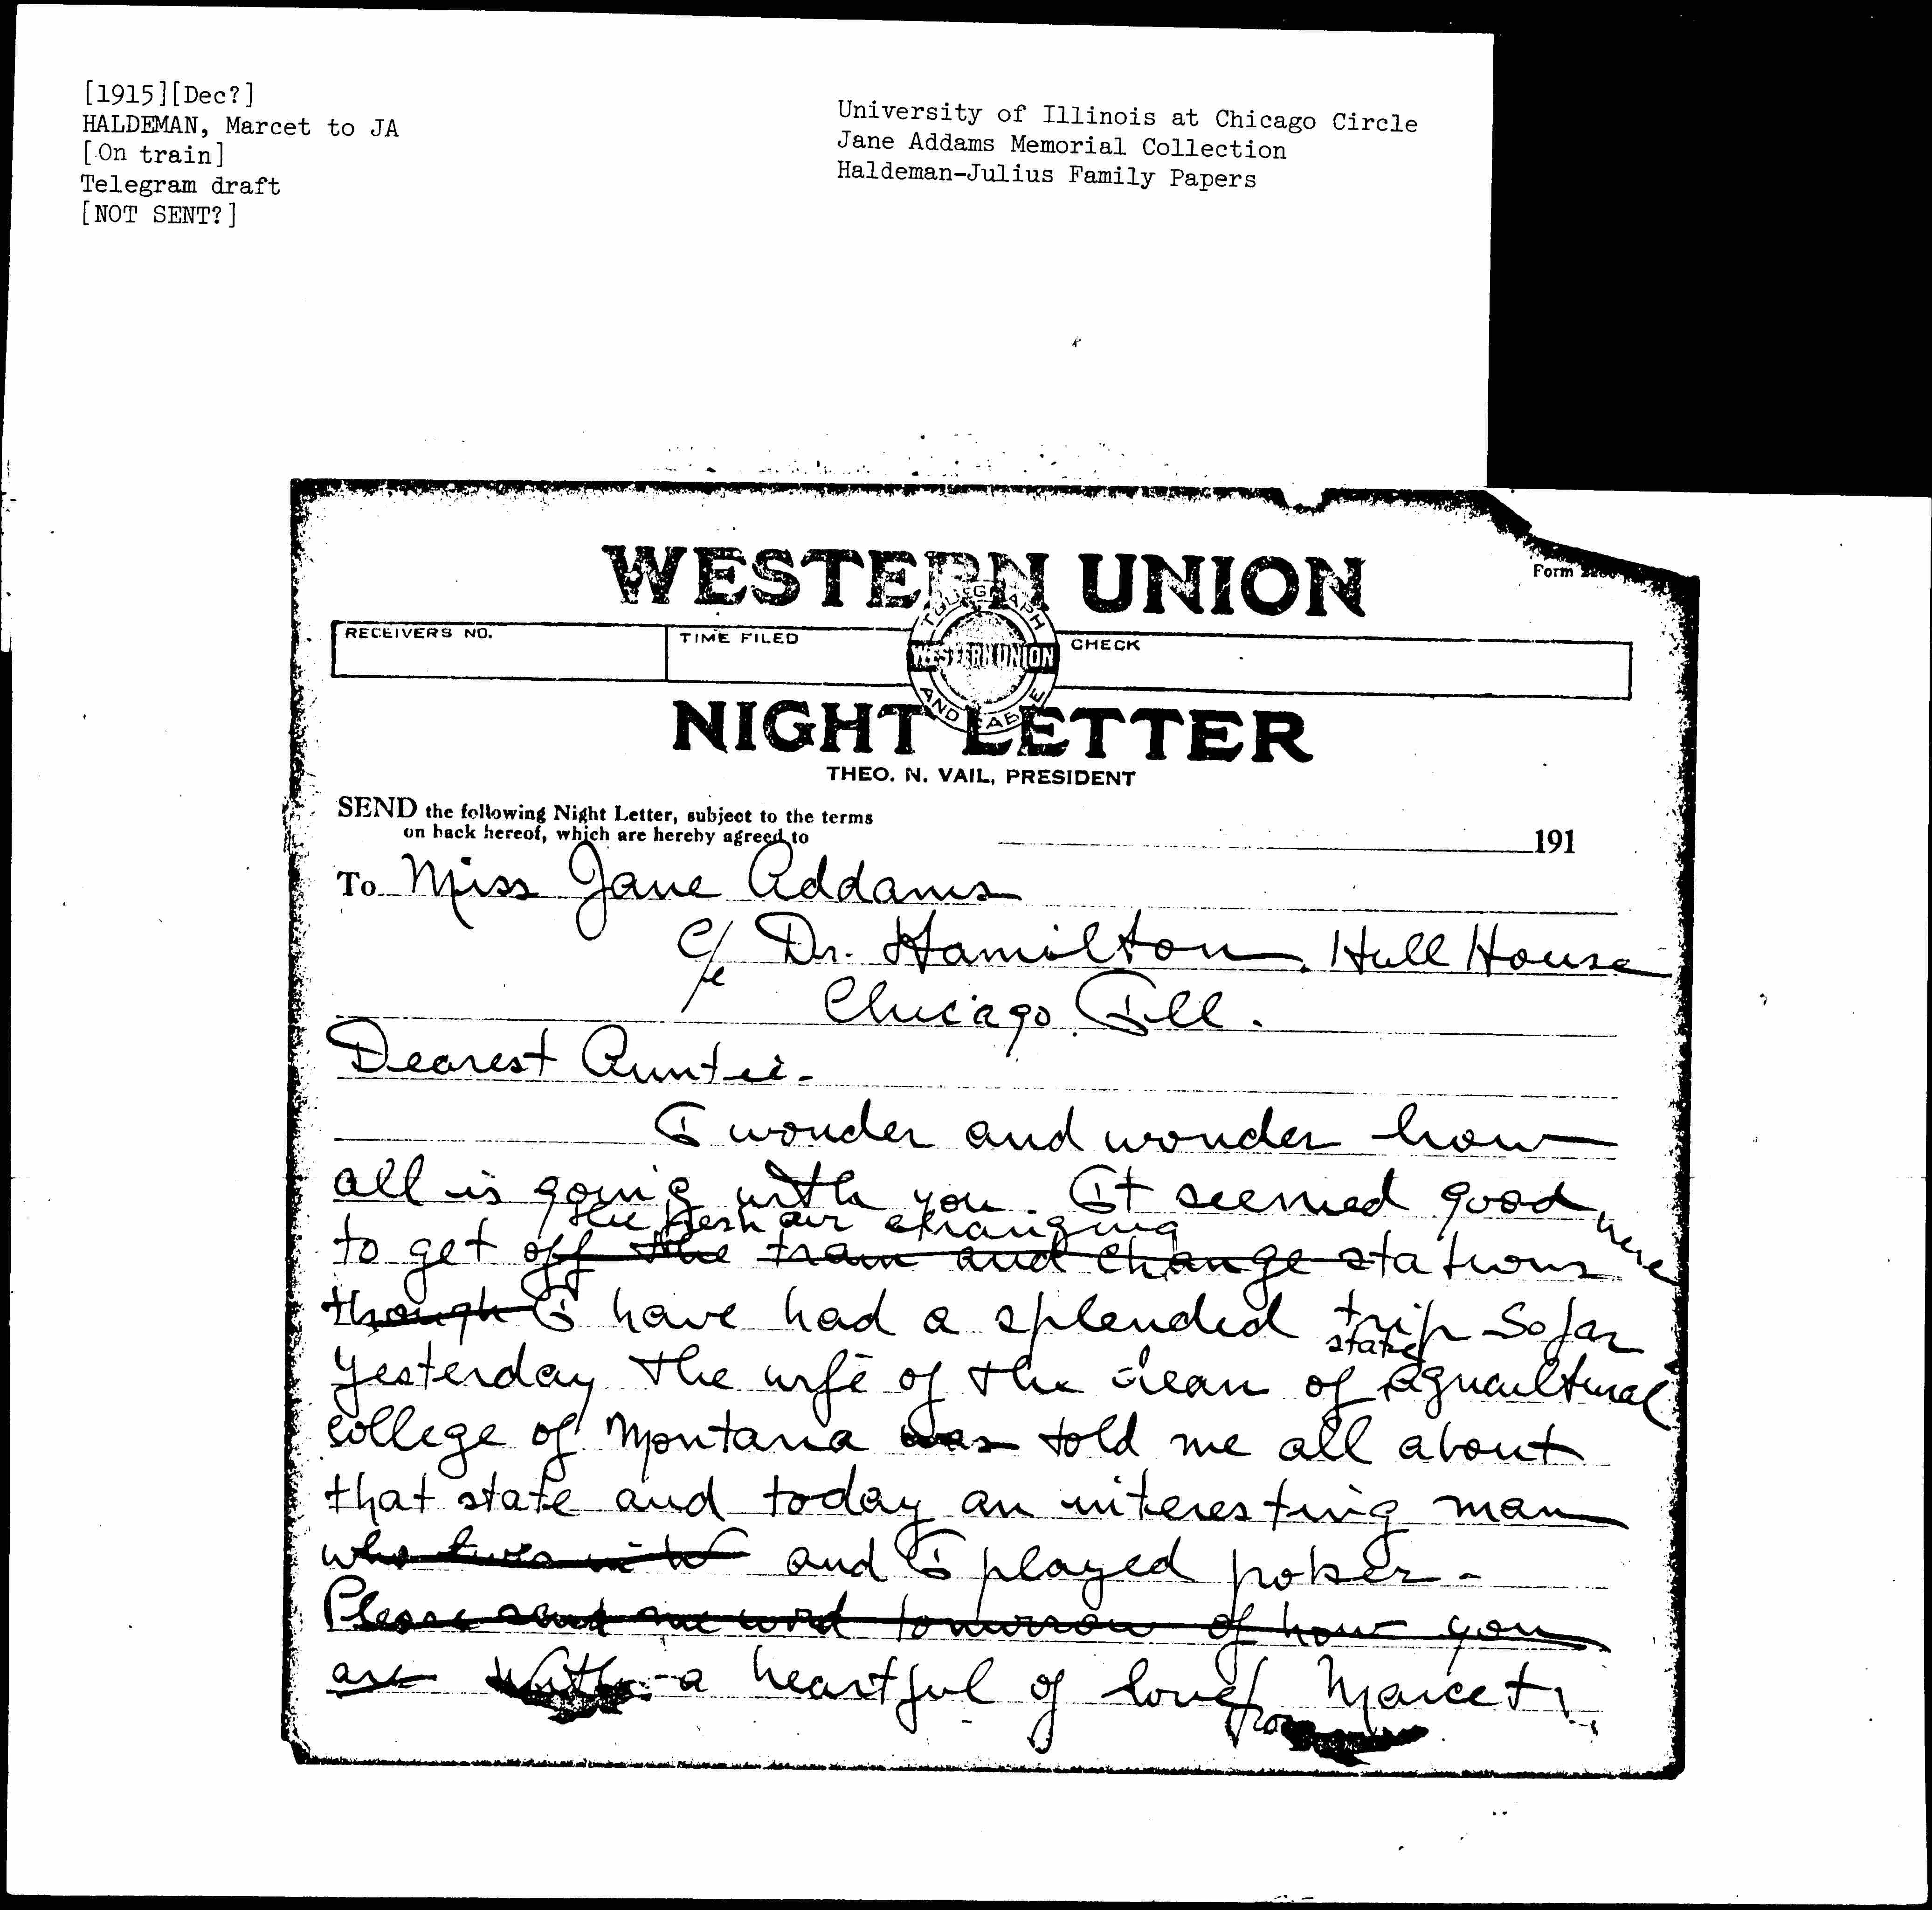 [1915][Dec?]
HALDEMAN, Marcet to JA
[On train]
Telegram draft
[NOT SENT?]
University of Illinois at Chicago Circle
Jane Addams Memorial Collection
Haldeman-Julius Family Papers
WESTERN UNION
Form
TELEGRAPH AND CABLE
WESTERN UNION
RECEIVERS NO.
TIME FILED
CHECK
NIGHT LETTER
THEO. N. VAIL, PRESIDENT
SEND the following Night Letter, subject to the terms
on back hereof, which are hereby agreed to
191
To Miss Jane Addams
c/o Dr. Hamilton, Hull House
Chicago Ill.
Dearest Auntie-
I wonder and wonder how
all is going with you. It seemed good
the fresh air changing
to get off the train and change stations here
though I have had a splended trip so far
state
yesterday the wife of the dean of agricultural
college of Montana was told me all about
that state and today an interesting man
who lives in and I played poker-
Please send me word tomorrow of how you
are With a heartful of love from Marcet